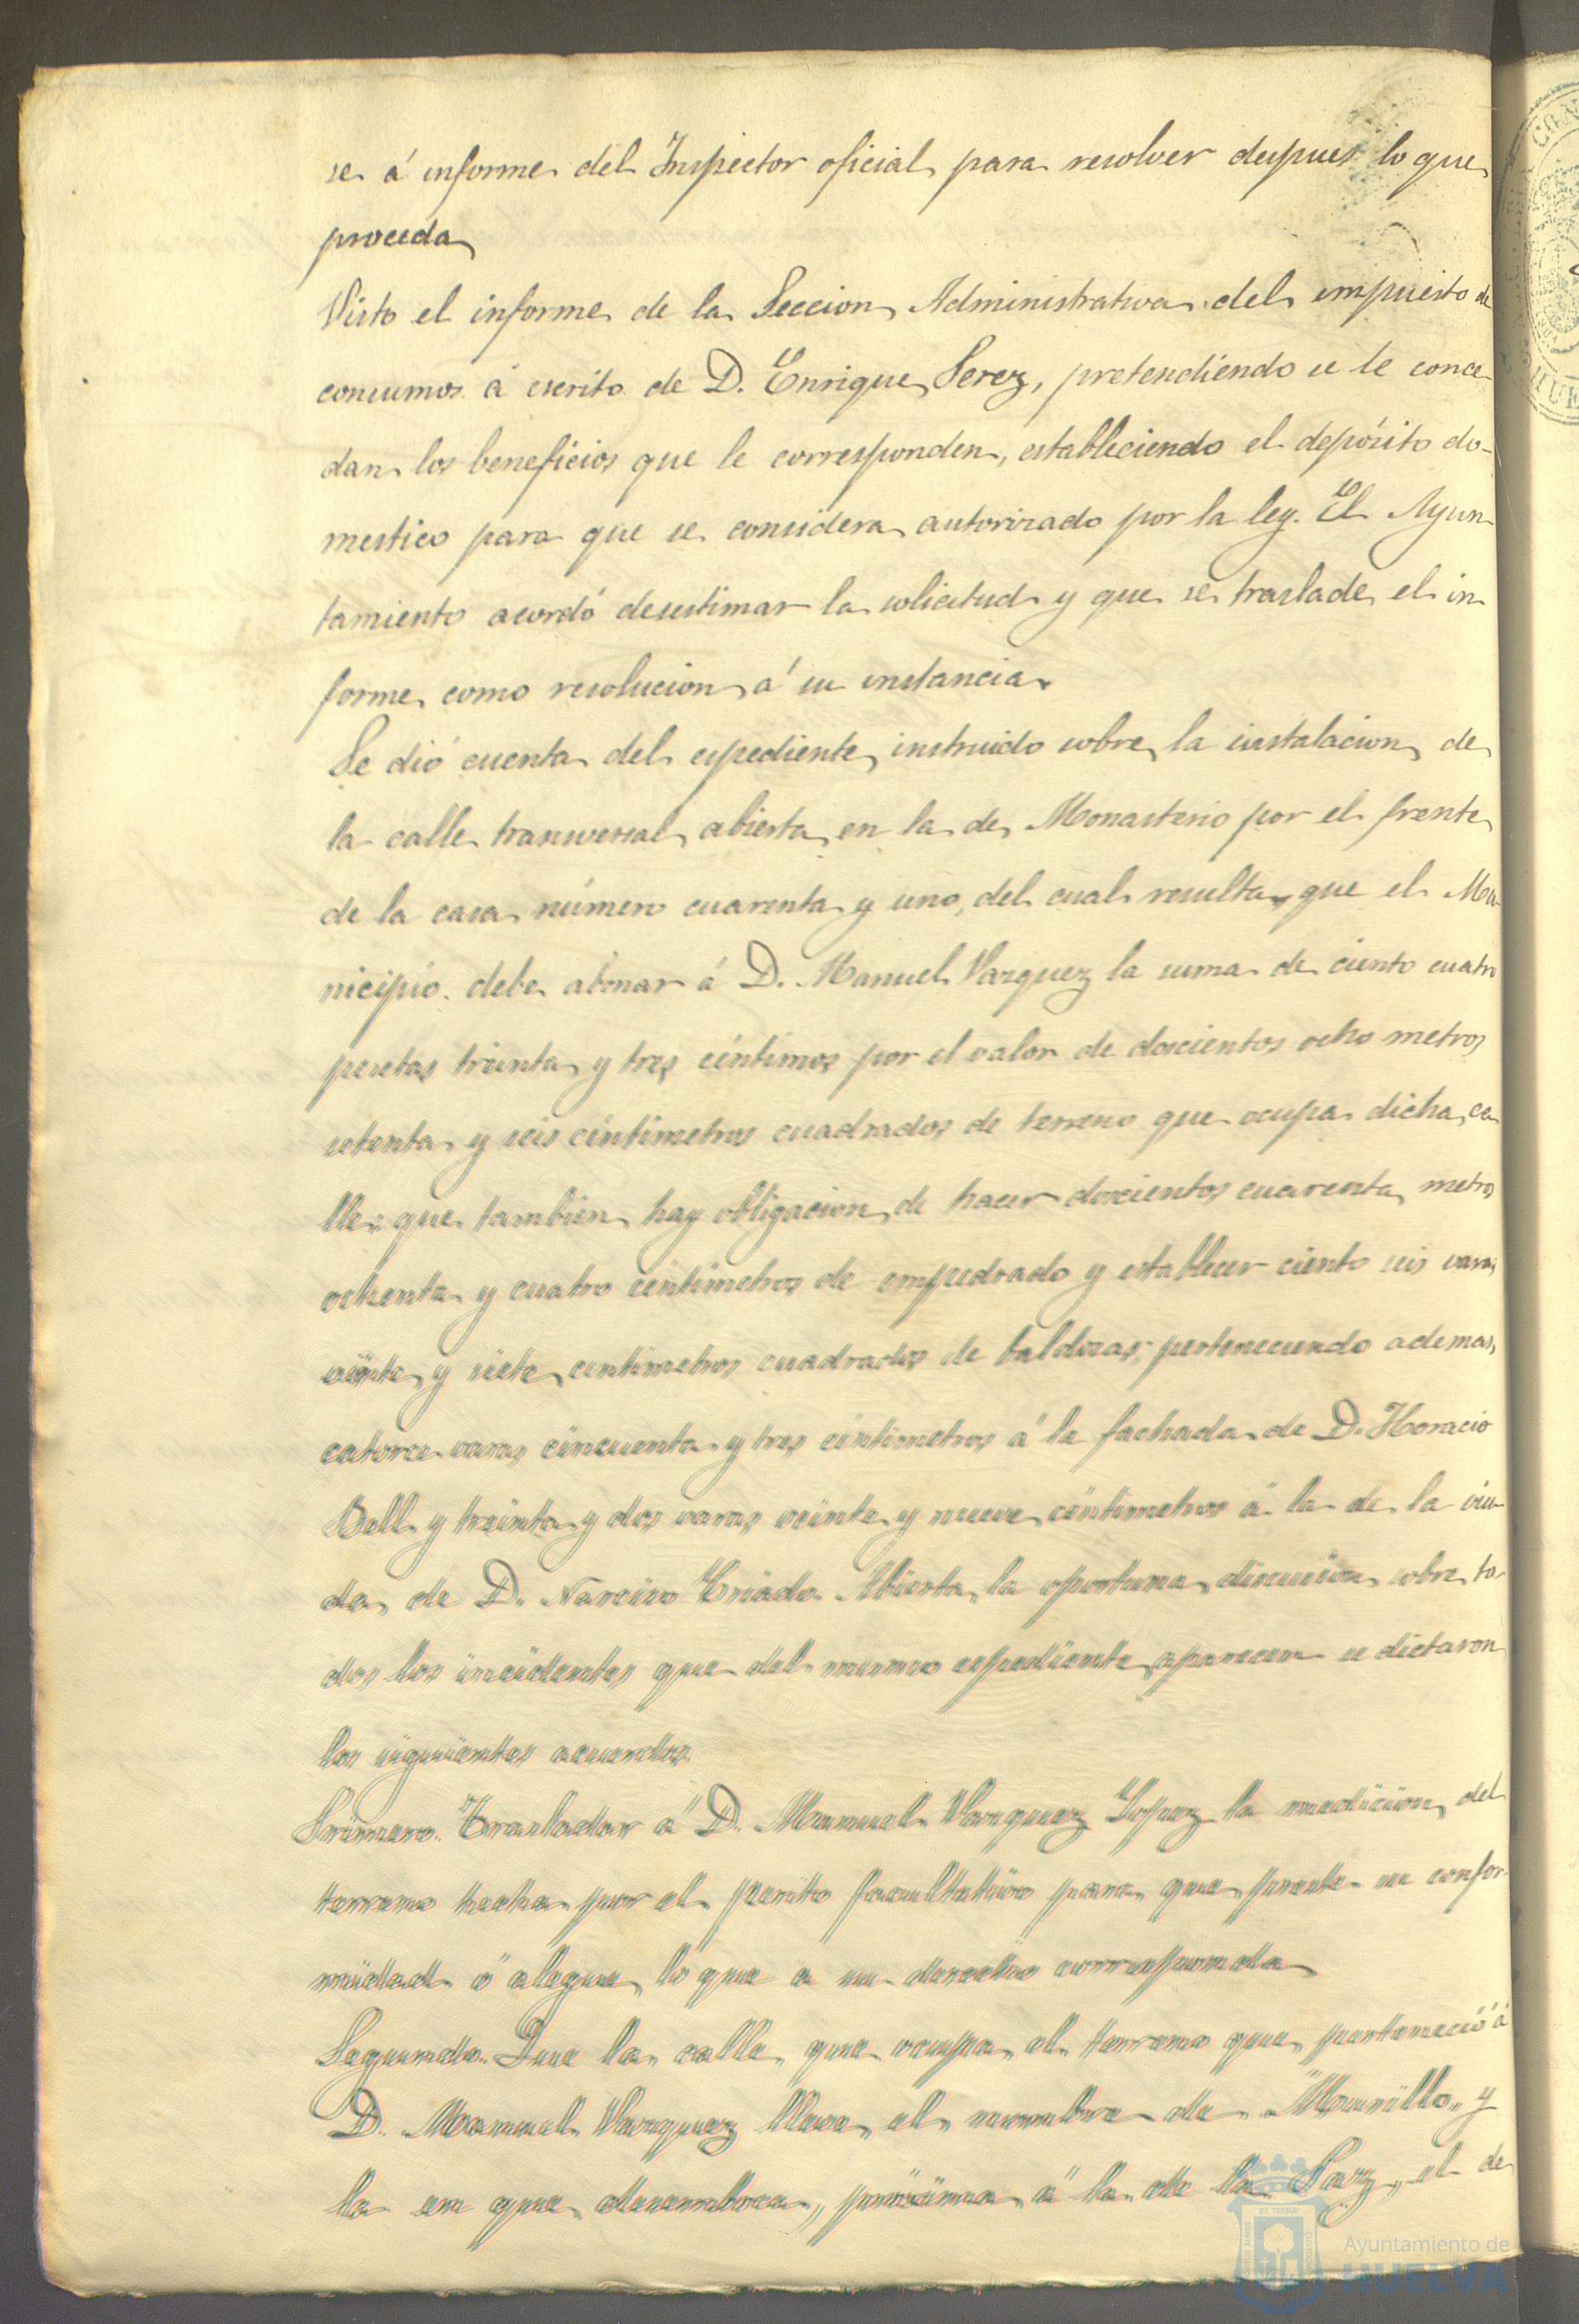 se á informe del Inspector oficial para resolver despues lo que
proceda
Visto el informe de la Seccion Administrativa del impuesto de
consumos á escrito de D. Enrique Perez, pretendiendo se le conce-
dan los beneficios que le corresponden, estableciendo el depósito do-
mestico para que se considera autorizado por la ley. El Ayun
tamiento acordó desestimar la solicitud y que se traslade el in
forme como resolucion á su instancia.
Se dió cuenta del espediente instruido sobre la instalacion de
la calle transversal abierta en la de Monasterio por el frente
de la casa número cuarenta y uno, del cual resulta que el Mu-
nicipio debe abonar á D. Manuel Vazquez la suma de ciento cuatro
pesetas treinta y tres céntimos por el valor de doscientos ocho metros
setenta y seis centimetros cuadrados de terreno que ocupa dicha ca
lle: que tambien hay obligacion de hacer doscientos cuarenta metros
ochenta y cuatro centimetros de empedrado y establecer ciento seis varas
veinte y siete centimetros cuadrados de baldosas; perteneciendo ademas,
catorce varas cincuenta y tres centimetros á la fachada de D. Horacio
Bell y treinta y dos varas veinte y nueve centimetros á la de la viu-
da de D. Narciso Criado. Abierta la oportuna discusion sobre to-
dos los incidentes que del mismo espediente aparecen se dictaron
los siguientes acuerdos.
Primero. Trasladar á D. Manuel Vazquez Lopez la medicion del
terreno hecha por el perito facultativo para que preste su confor-
midad ó alegue lo que a su derecho corresponda
Segundo. Que la calle que ocupa el terreno que perteneció á
D. Manuel Vazquez lleve el nombre de "Murillo" y
la en que desemboca, próxima á la de la Paz, el de
Ayuntamiento de
HUELVA